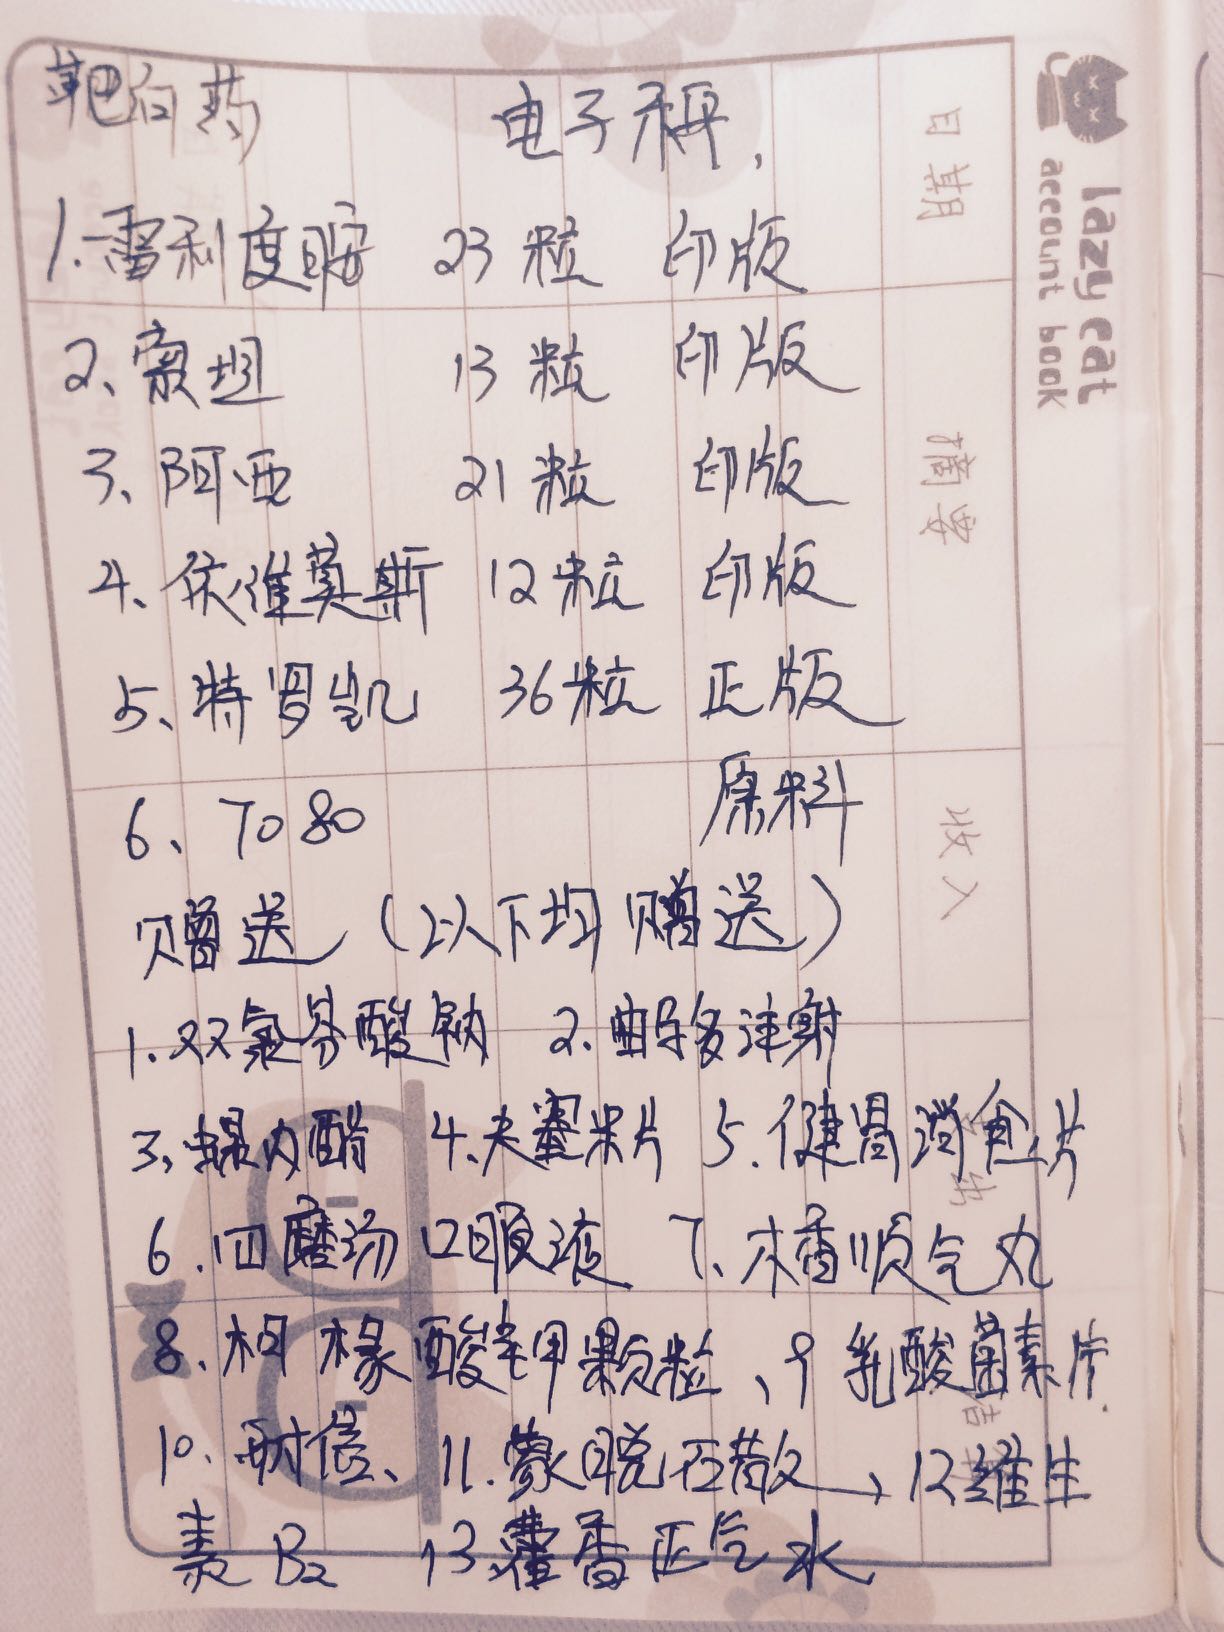 靶向药 电子秤,
1.雷利度胺 23粒 印版
2、索坦 13粒 印版
3、阿西 21粒 印版
4、依维莫斯 12粒 印版
5、特罗凯 36粒 正版
6、7080 原料
赠送(以下均赠送)
1.双氯芬酸钠 2.曲马多注射
3、螺内酯 4.大蜜米片 5.健胃消食片
6.四磨汤口服液 7、木香顺气丸
8、枸橼酸钾颗粒、9乳酸菌素片
10、耐信、11.蒙脱石散、12维生
素B2 13藿香正气水
日期
摘要
收入
lazy cat
account book